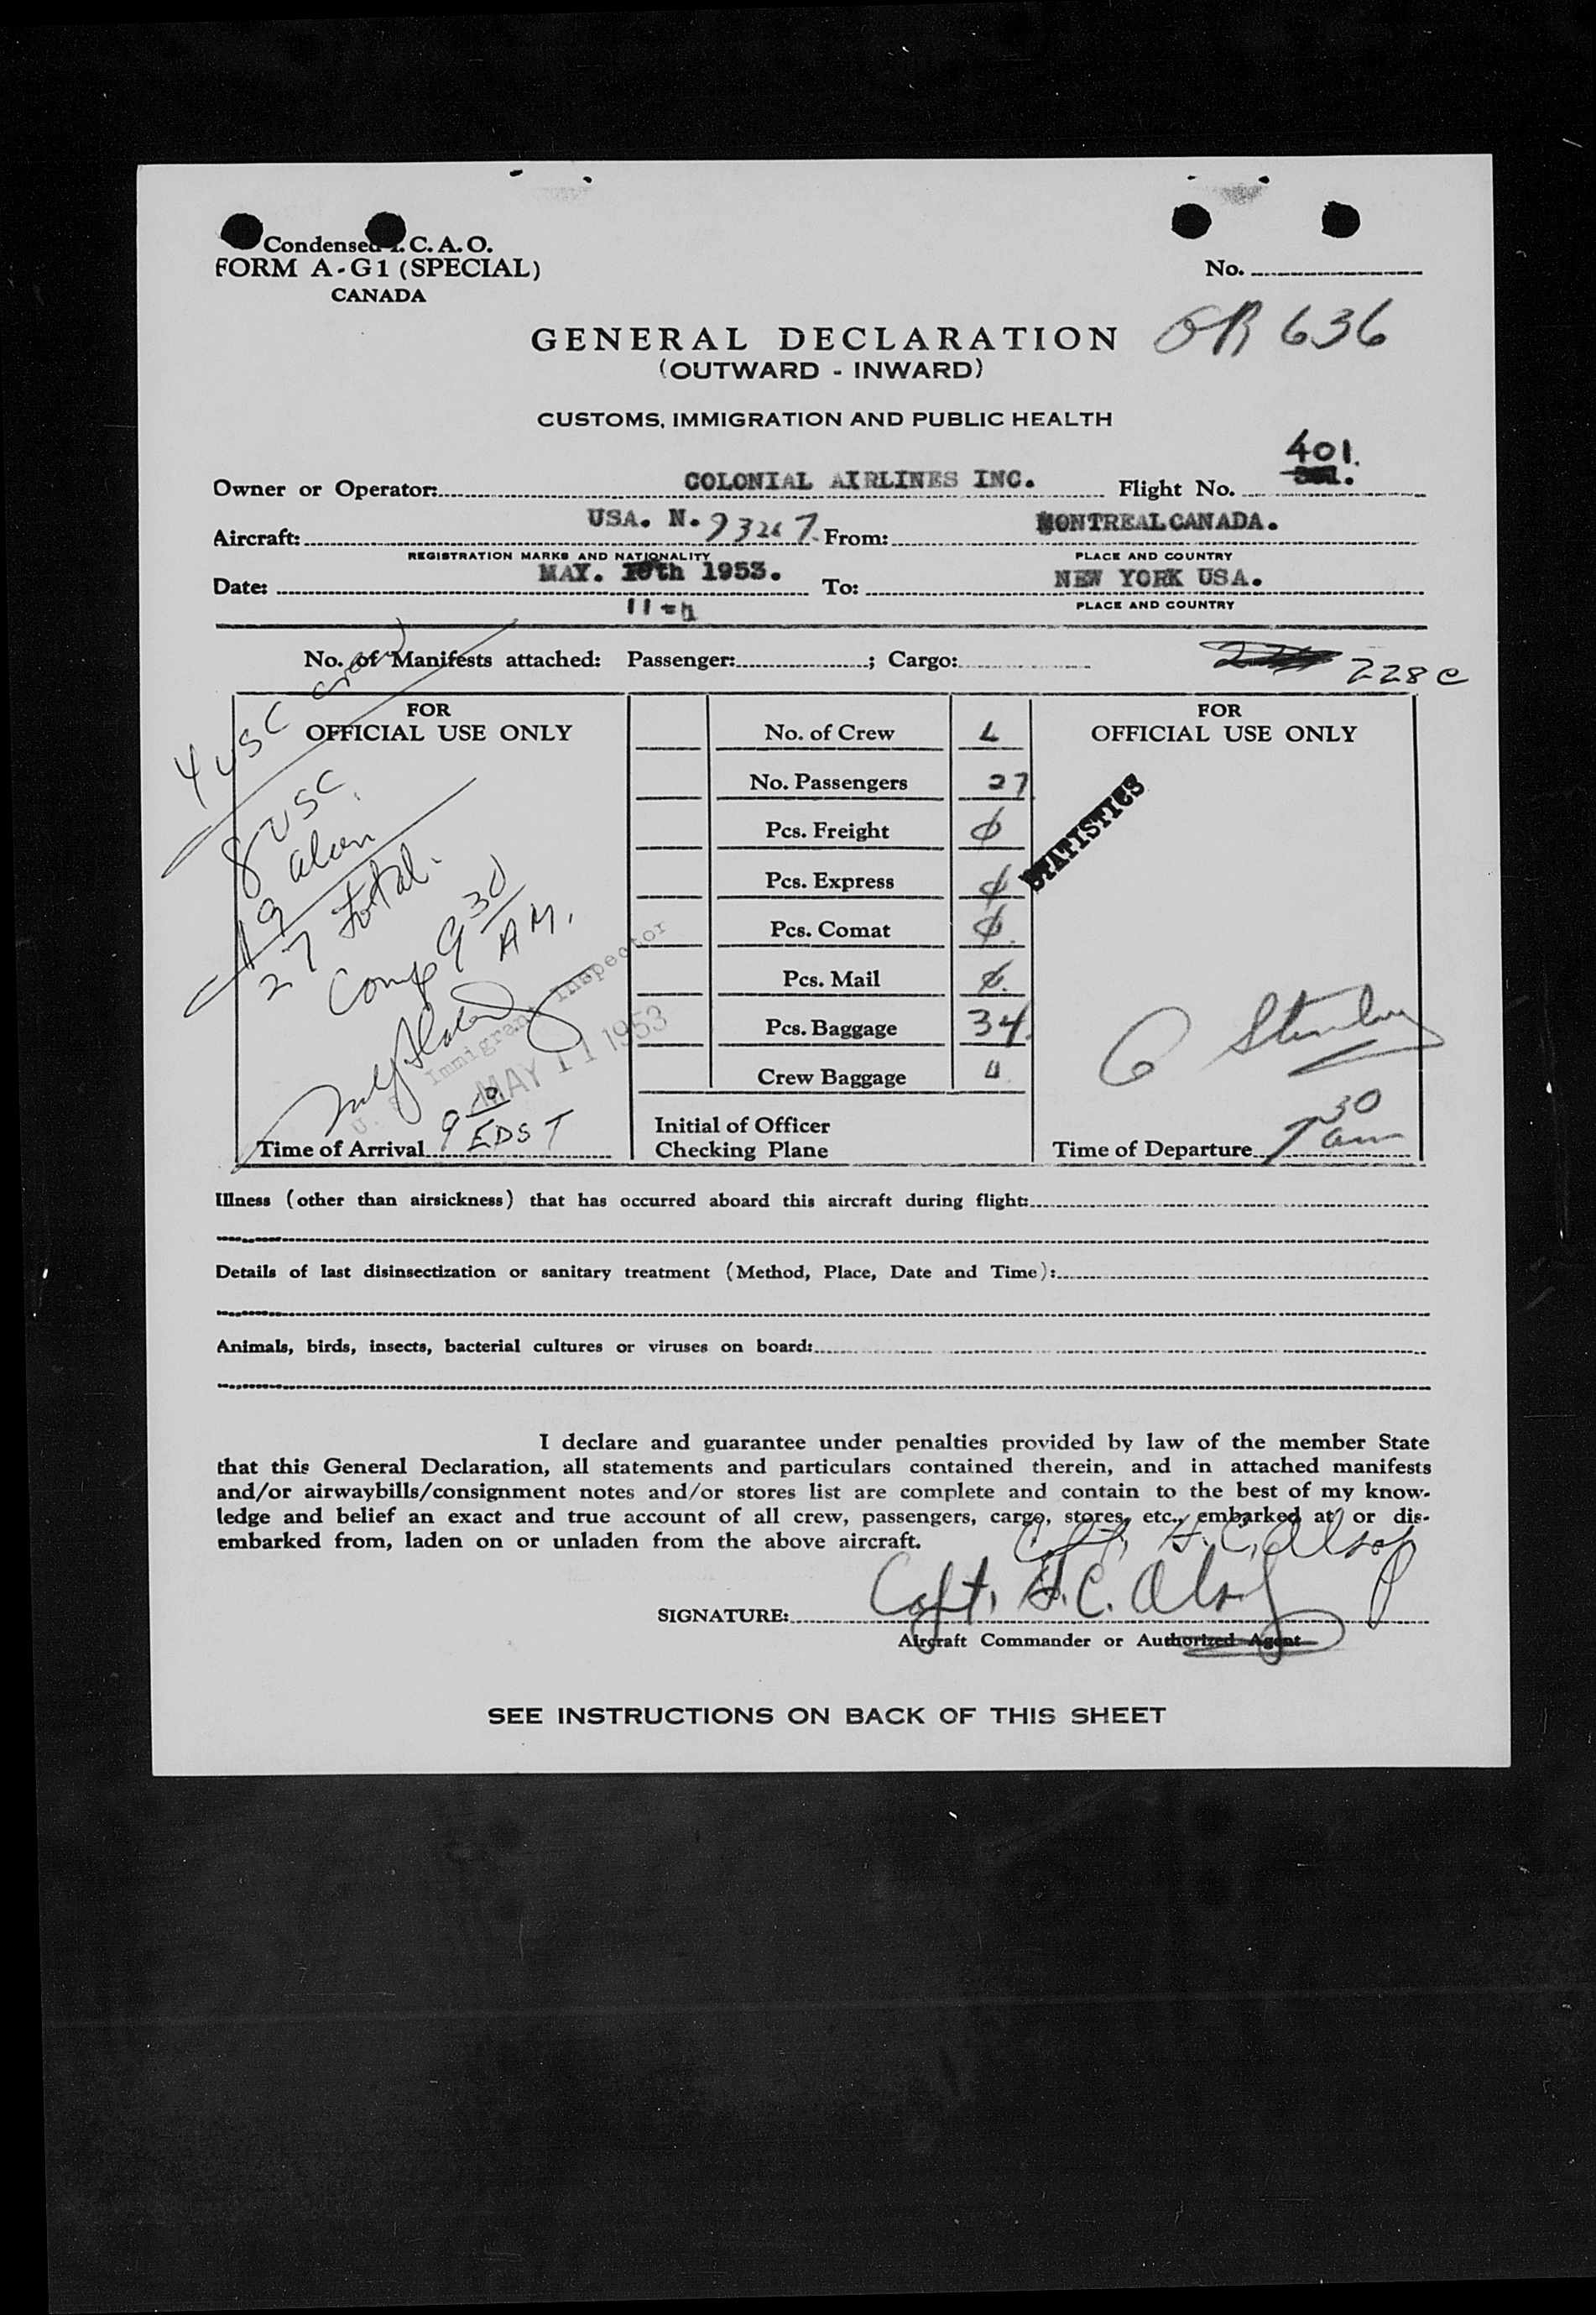 Condensed I.C.A.O.
FORM A-G1 (SPECIAL)
CANADA
No.
GENERAL DECLARATION
636
(OUTWARD - INWARD)
CUSTOMS, IMMIGRATION AND PUBLIC HEALTH
401.
Owner or Operator: COLONIAL AIRLINES INC. Flight No.
Aircraft: USA. N. 93267. From: MONTREAL CANADA.
REGISTRATION MARKS AND NATIONALITY PLACE AND COUNTRY
Date: MAY. 10th 1953. To: NEW YORK USA.
11th
PLACE AND COUNTRY
No. of Manifests attached: Passenger: ; Cargo:
228 C
4 USC crew
FOR
OFFICIAL USE ONLY
8 USC
19 alien
27 total.
Comp 9 30 AM.
U. S. Immigrant Inspector
MAY 11 1953
Time of Arrival 9 EDST
No. of Crew 4
No. Passengers 27
Pcs. Freight ∅
Pcs. Express ∅
Pcs. Comat ∅
Pcs. Mail ∅
Pcs. Baggage 34
Crew Baggage 4
Initial of Officer
Checking Plane
FOR
OFFICIAL USE ONLY
STATISTICS
Time of Departure 7 30 am
Illness (other than airsickness) that has occurred aboard this aircraft during flight:
Details of last disinsectization or sanitary treatment (Method, Place, Date and Time):
Animals, birds, insects, bacterial cultures or viruses on board:
I declare and guarantee under penalties provided by law of the member State
that this General Declaration, all statements and particulars contained therein, and in attached manifests
and/or airwaybills/consignment notes and/or stores list are complete and contain to the best of my know-
ledge and belief an exact and true account of all crew, passengers, cargo, stores, etc., embarked at or dis-
embarked from, laden on or unladen from the above aircraft.
Capt. H.C. Alsop
SIGNATURE: Capt. H.C. Alsop
Aircraft Commander or Authorized Agent
SEE INSTRUCTIONS ON BACK OF THIS SHEET